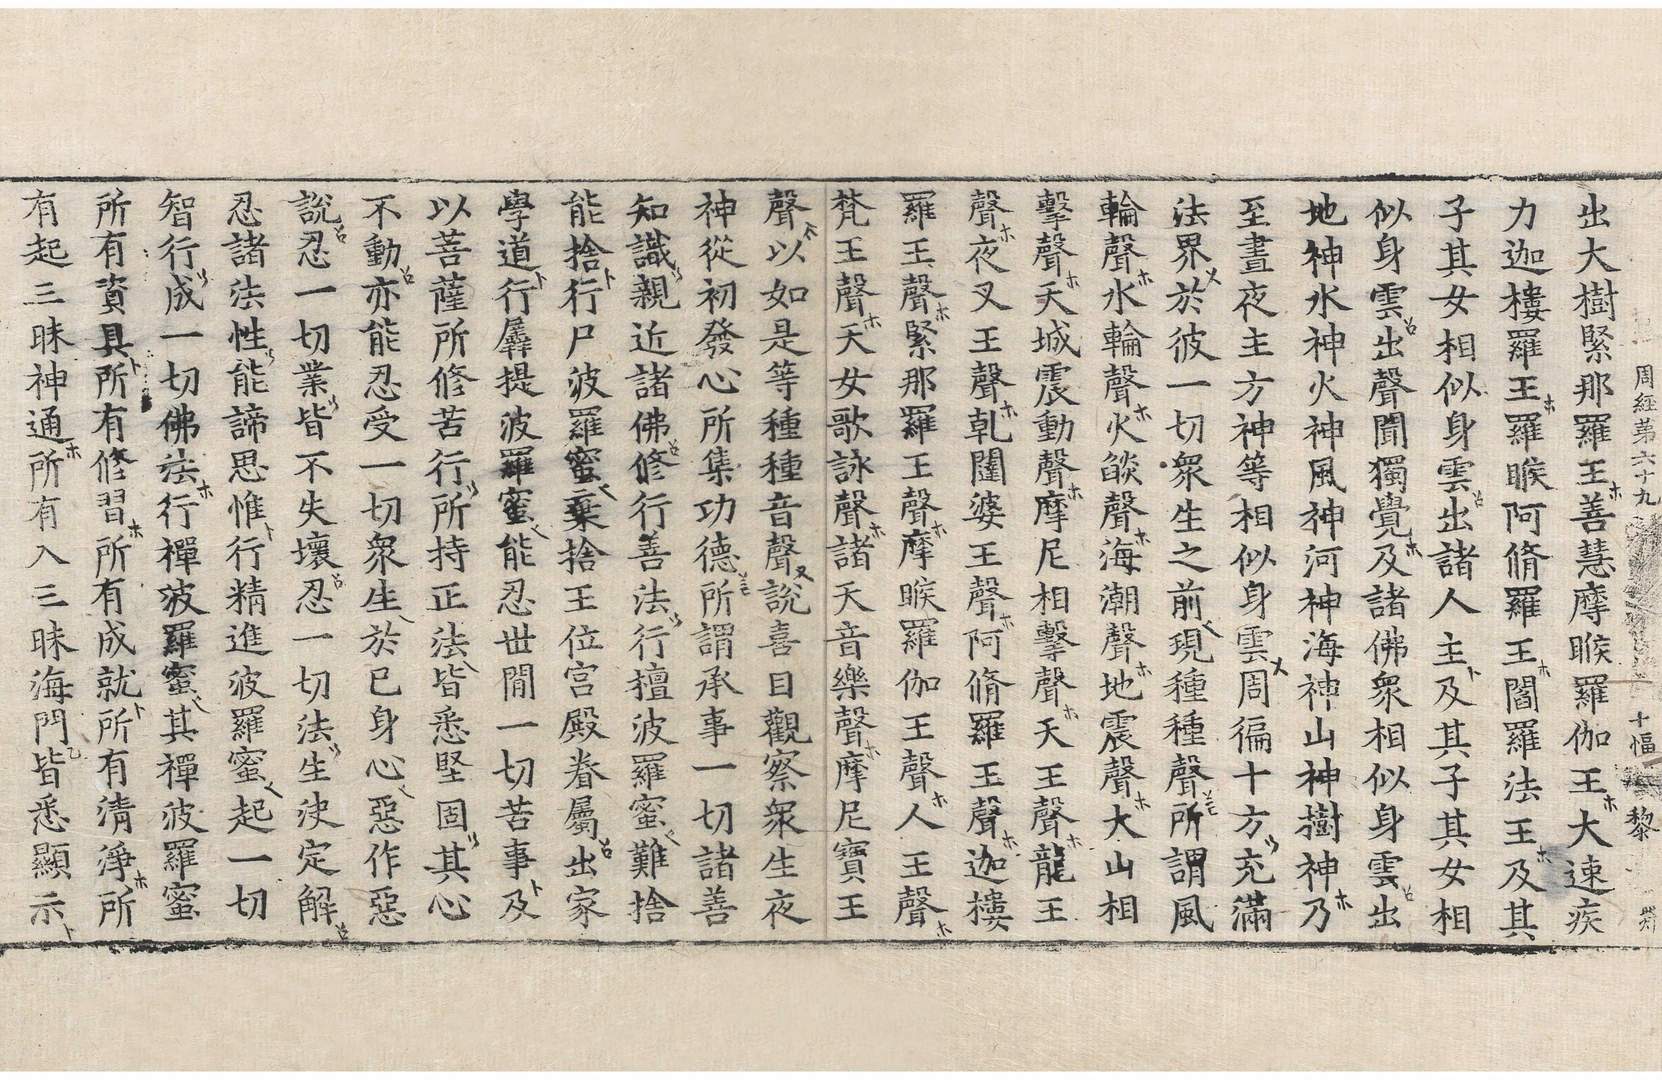 周經第六十九 十幅 黎
出大樹緊那羅王善慧摩睺羅伽王大速疾
力迦樓羅王羅睺阿脩羅王閻羅法王及其
子其女相似身雲出諸人主及其子其女相
似身雲出聲聞獨覺及諸佛衆相似身雲出
地神水神火神風神河神海神山神樹神乃
至晝夜主方神等相似身雲周徧十方充滿
法界於彼一切衆生之前現種種聲所謂風
輪聲水輪聲火燄聲海潮聲地震聲大山相
擊聲天城震動聲摩尼相擊聲天王聲龍王
聲夜叉王聲乹闥婆王聲阿脩羅王聲迦樓
羅王聲緊那羅王聲摩睺羅伽王聲人王聲
梵王聲天女歌詠聲諸天音樂聲摩尼寶王
聲以如是等種種音聲說喜目觀察衆生夜
神從初發心所集功德所謂承事一切諸善
知識親近諸佛修行善法行檀波羅蜜難捨
能捨行尸波羅蜜棄捨王位宮殿眷屬出家
學道行羼提波羅蜜能忍世間一切苦事及
以菩薩所修苦行所持正法皆悉堅固其心
不動亦能忍受一切衆生於已身心惡作惡
說忍一切業皆不失壞忍一切法生决定解
忍諸法性能諦思惟行精進波羅蜜起一切
智行成一切佛法行禪波羅蜜其禪波羅蜜
所有資具所有修習所有成就所有清淨所
有起三昧神通所有入三昧海門皆悉顯示